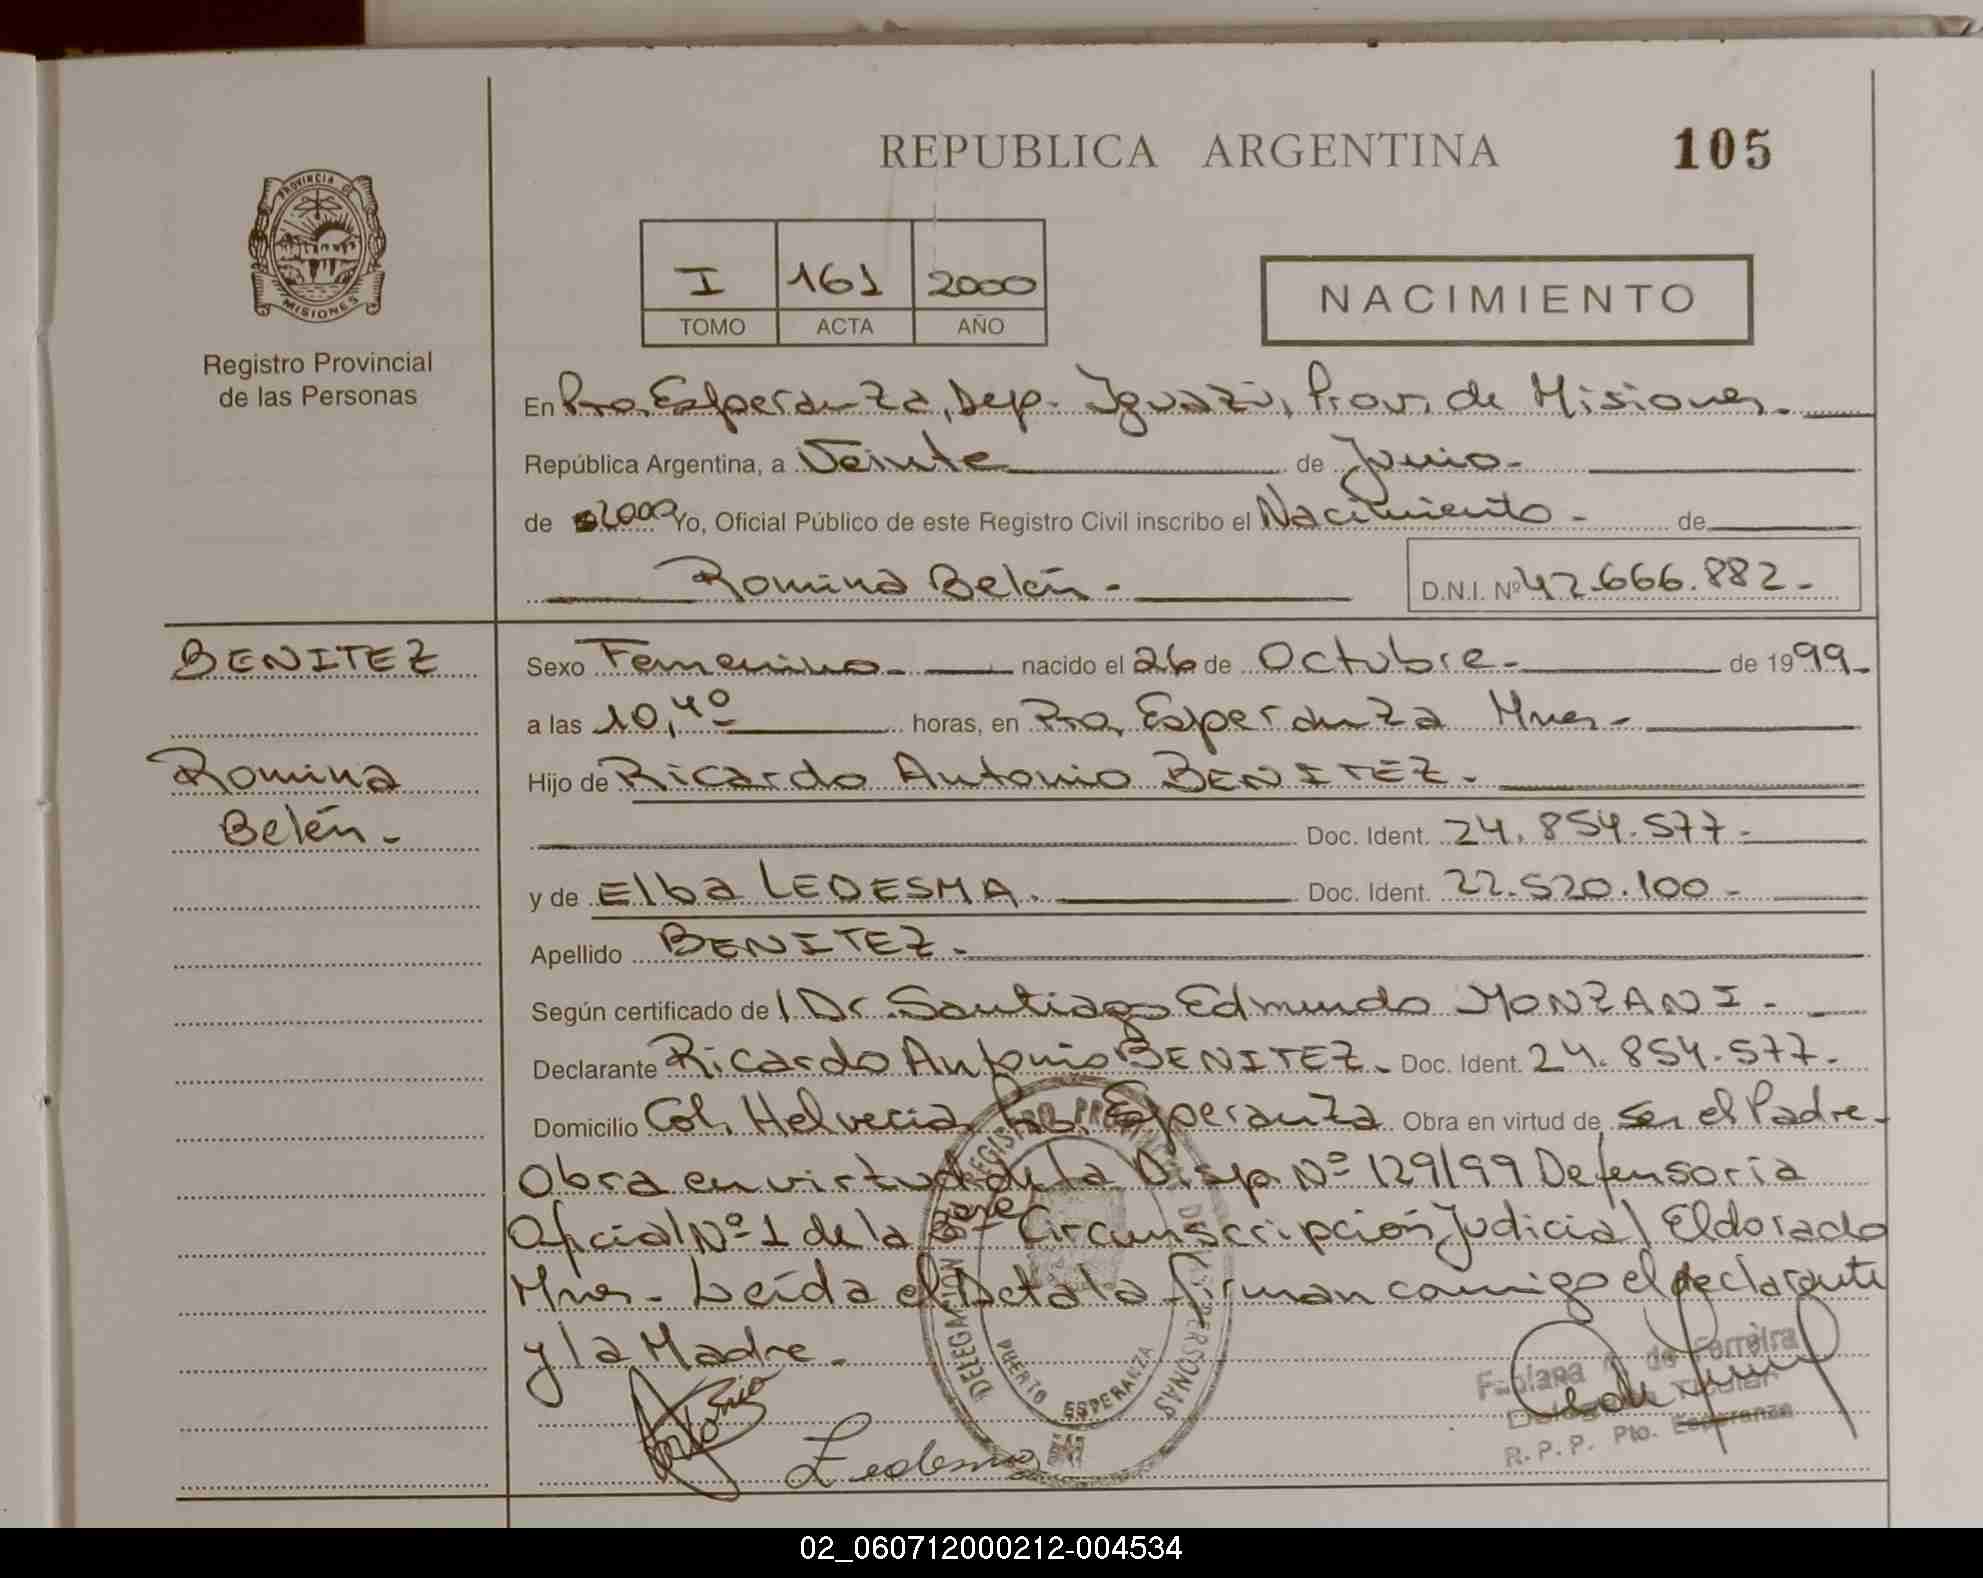 REPUBLICA ARGENTINA
105
PROVINCIA DE
MISIONES
Registro Provincial
de las Personas
I 161 2000
TOMO ACTA AÑO
NACIMIENTO
En Pto. Esperanza, Dep. Iguazú, Prov. de Misiones.
República Argentina, a Veinte de Junio-
de 2000 Yo, Oficial Público de este Registro Civil inscribo el Nacimiento - de
Romina Belén - D.N.I. Nº 42.666.882-
BENITEZ
Romina
Belén-
Sexo Femenino- nacido el 26 de Octubre- de 1999-
a las 10,40 horas, en Pto. Esperanza Mnes-
Hijo de Ricardo Antonio BENITEZ-
Doc. Ident. 24.854.577-
y de Elba LEDESMA. Doc. Ident. 22.520.100-
Apellido BENITEZ-
Según certificado de l Dr. Santiago Edmundo MONZANI-
Declarante Ricardo Antonio BENITEZ- Doc. Ident. 24.854.577-
Domicilio Col. Helvecia, Pto. Esperanza Obra en virtud de ser el Padre-
Obra en virtud de la Disp. Nº 129/99 Defensoría
Oficial Nº 1 de la 3ª Circunscripción Judicial Eldorado
Mnes- Leída el Acta la firman conmigo el declarante
y la Madre-
Ledesma
DELEGACION REGISTRO PROVINCIAL DE LAS PERSONAS
PUERTO ESPERANZA
Fabiana de Ferreira
Titular
R.P.P. Pto. Esperanza
02_060712000212-004534